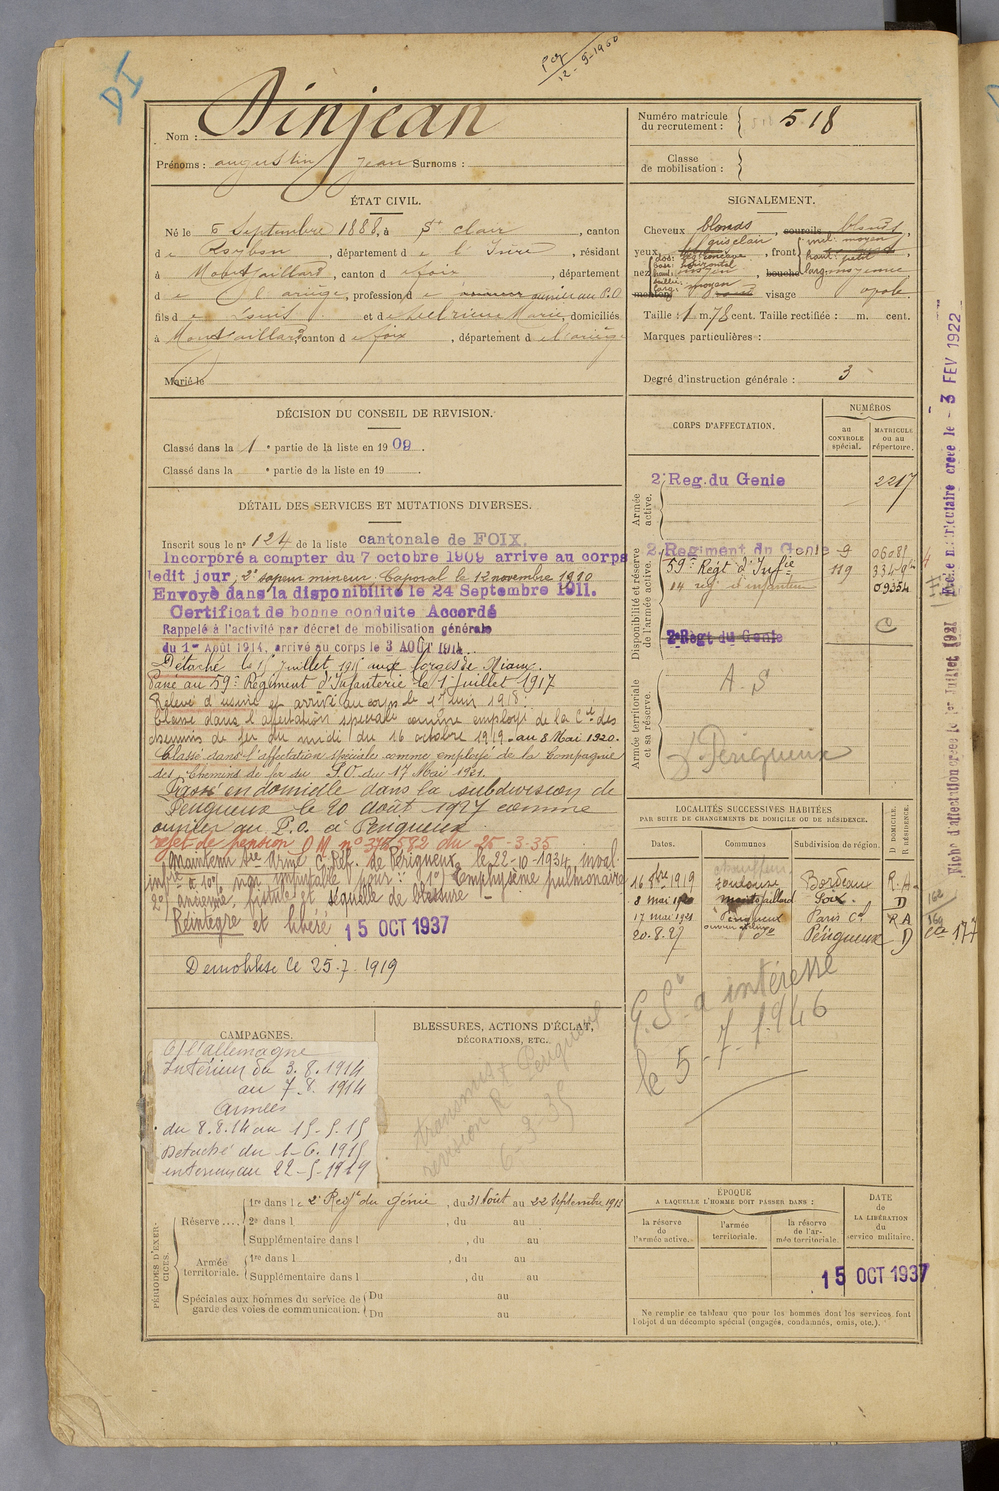 DI
12-9-1960
Nom : Dinjean
Prénoms : augustin Jean Surnoms :
Numéro matricule
du recrutement : 518
Classe
de mobilisation :
ÉTAT CIVIL.
Né le 6 Septembre 1888, à St clair , canton
de Roybon , département de l'Isère , résidant
à Montgaillard , canton de foix , département
de l'ariège , profession de ouvrier au P.O
fils de Louis et de Marie, domiciliés
à Montgaillard, canton de foix , département de l'ariège
Marié le
SIGNALEMENT.
Cheveux blonds , sourcils blonds ,
yeux gris clair , front incl: moyen
haut: petit
larg: moyenne
nez dos:
base: horizontal
haut: moyen
saillie:
larg: moyen
bouche
menton visage ovale
Taille : 1 m. 78 cent. Taille rectifiée : m. cent.
Marques particulières :
Degré d'instruction générale : 3
DÉCISION DU CONSEIL DE REVISION.
Classé dans la 1e partie de la liste en 1909.
Classé dans la e partie de la liste en 19
CORPS D'AFFECTATION.
NUMÉROS
au
CONTROLE
spécial.
MATRICULE
ou au
répertoire.
Armée
active.
2e Reg. du Genie 2217
Disponibilité et réserve
de l'armée active.
2e Regiment du Genie 9 06081
59e Régt d'Infie 119
14 reg d'infanterie 09354
2e Régt du Genie C
Armée territoriale
et sa réserve.
A. S
D. Périgueux
DÉTAIL DES SERVICES ET MUTATIONS DIVERSES.
Inscrit sous le no 124 de la liste cantonale de FOIX.
Incorporé à compter du 7 octobre 1909 arrivé au corps
ledit jour, 2e sapeur mineur. Caporal le 12 novembre 1910
Envoyé dans la disponibilité le 24 Septembre 1911.
Certificat de bonne conduite Accordé
Rappelé à l'activité par décret de mobilisation générale
du 1er Août 1914, arrivé au corps le 3 AOUT 1914.
Détaché le 1er Juillet 1915 aux forges de Niaux.
Passé au 59e Régiment d'Infanterie le 1er Juillet 1917
Relevé d'usine et arrivé au corps le 1er Juin 1918:
Classé dans l'affectation spéciale comme employé de la Cie des
chemins de fer du midi du 16 octobre 1919 - au 8 Mai 1920.
Classé dans l'affectation spéciale comme employé de la Compagnie
des Chemins de fer du P.O. du 17 Mai 1921.
Passé en domicile dans la subdivision de
Périgueux le 20 août 1927 comme
ouvrier au P.O. à Périgueux
rejet de pension D M no 375582 du 25-3-35
Maintenu sce armé C. Réf. de Périgueux le 22-10-1934 inval.
infre à 10% non imputable pour: 1o) Emphysème pulmonaire
2o) ancienne, fistule et séquelle de blessure
Réintégré et libéré 15 OCT 1937
Démobilisé le 25-7-1919
LOCALITÉS SUCCESSIVES HABITÉES
PAR SUITE DE CHANGEMENTS DE DOMICILE OU DE RÉSIDENCE.
Dates. Communes Subdivision de région. D DOMICILE. R RÉSIDENCE.
16 8bre 1919 Toulouse Bordeaux R.A.
8 mai 1920 Montgaillard Foix. D
17 mai 1921 Périgueux Paris Cal R A
20.8.27 do Périgueux D
G. St a intéressé
le 5-7-1946
CAMPAGNES.
C/ l'allemagne
Intérieur du 3.8.1914
au 7.8.1914
Armées
du 8.8.14 au 15-5-15
Détaché du 1-6.1915
intérieur au 22-5-1919
BLESSURES, ACTIONS D'ÉCLAT,
DÉCORATIONS, ETC.
transmis à Périgueux
revision R
6-9-35
PÉRIODES D'EXERCICES.
Réserve.... 1re dans le 2e Regt du Génie , du 31 Août au 22 Septembre 1913
2e dans l , du au
Supplémentaire dans l , du au
Armée
territoriale. 1re dans l , du au
Supplémentaire dans l , du au
Spéciales aux hommes du service de
garde des voies de communication. Du au
Du au
ÉPOQUE
A LAQUELLE L'HOMME DOIT PASSER DANS :
la réserve
de
l'armée active.
l'armée
territoriale.
la réserve
de l'ar-
mée territoriale.
DATE
de
LA LIBÉRATION
du
service militaire.
15 OCT 1937
Ne remplir ce tableau que pour les hommes dont les services font
l'objet d'un décompte spécial (engagés, condamnés, omis, etc.).
Fiche matriculaire créée le - 3 FEV 1922
Fiche d'affectation créée le 1er Juillet 1921
177